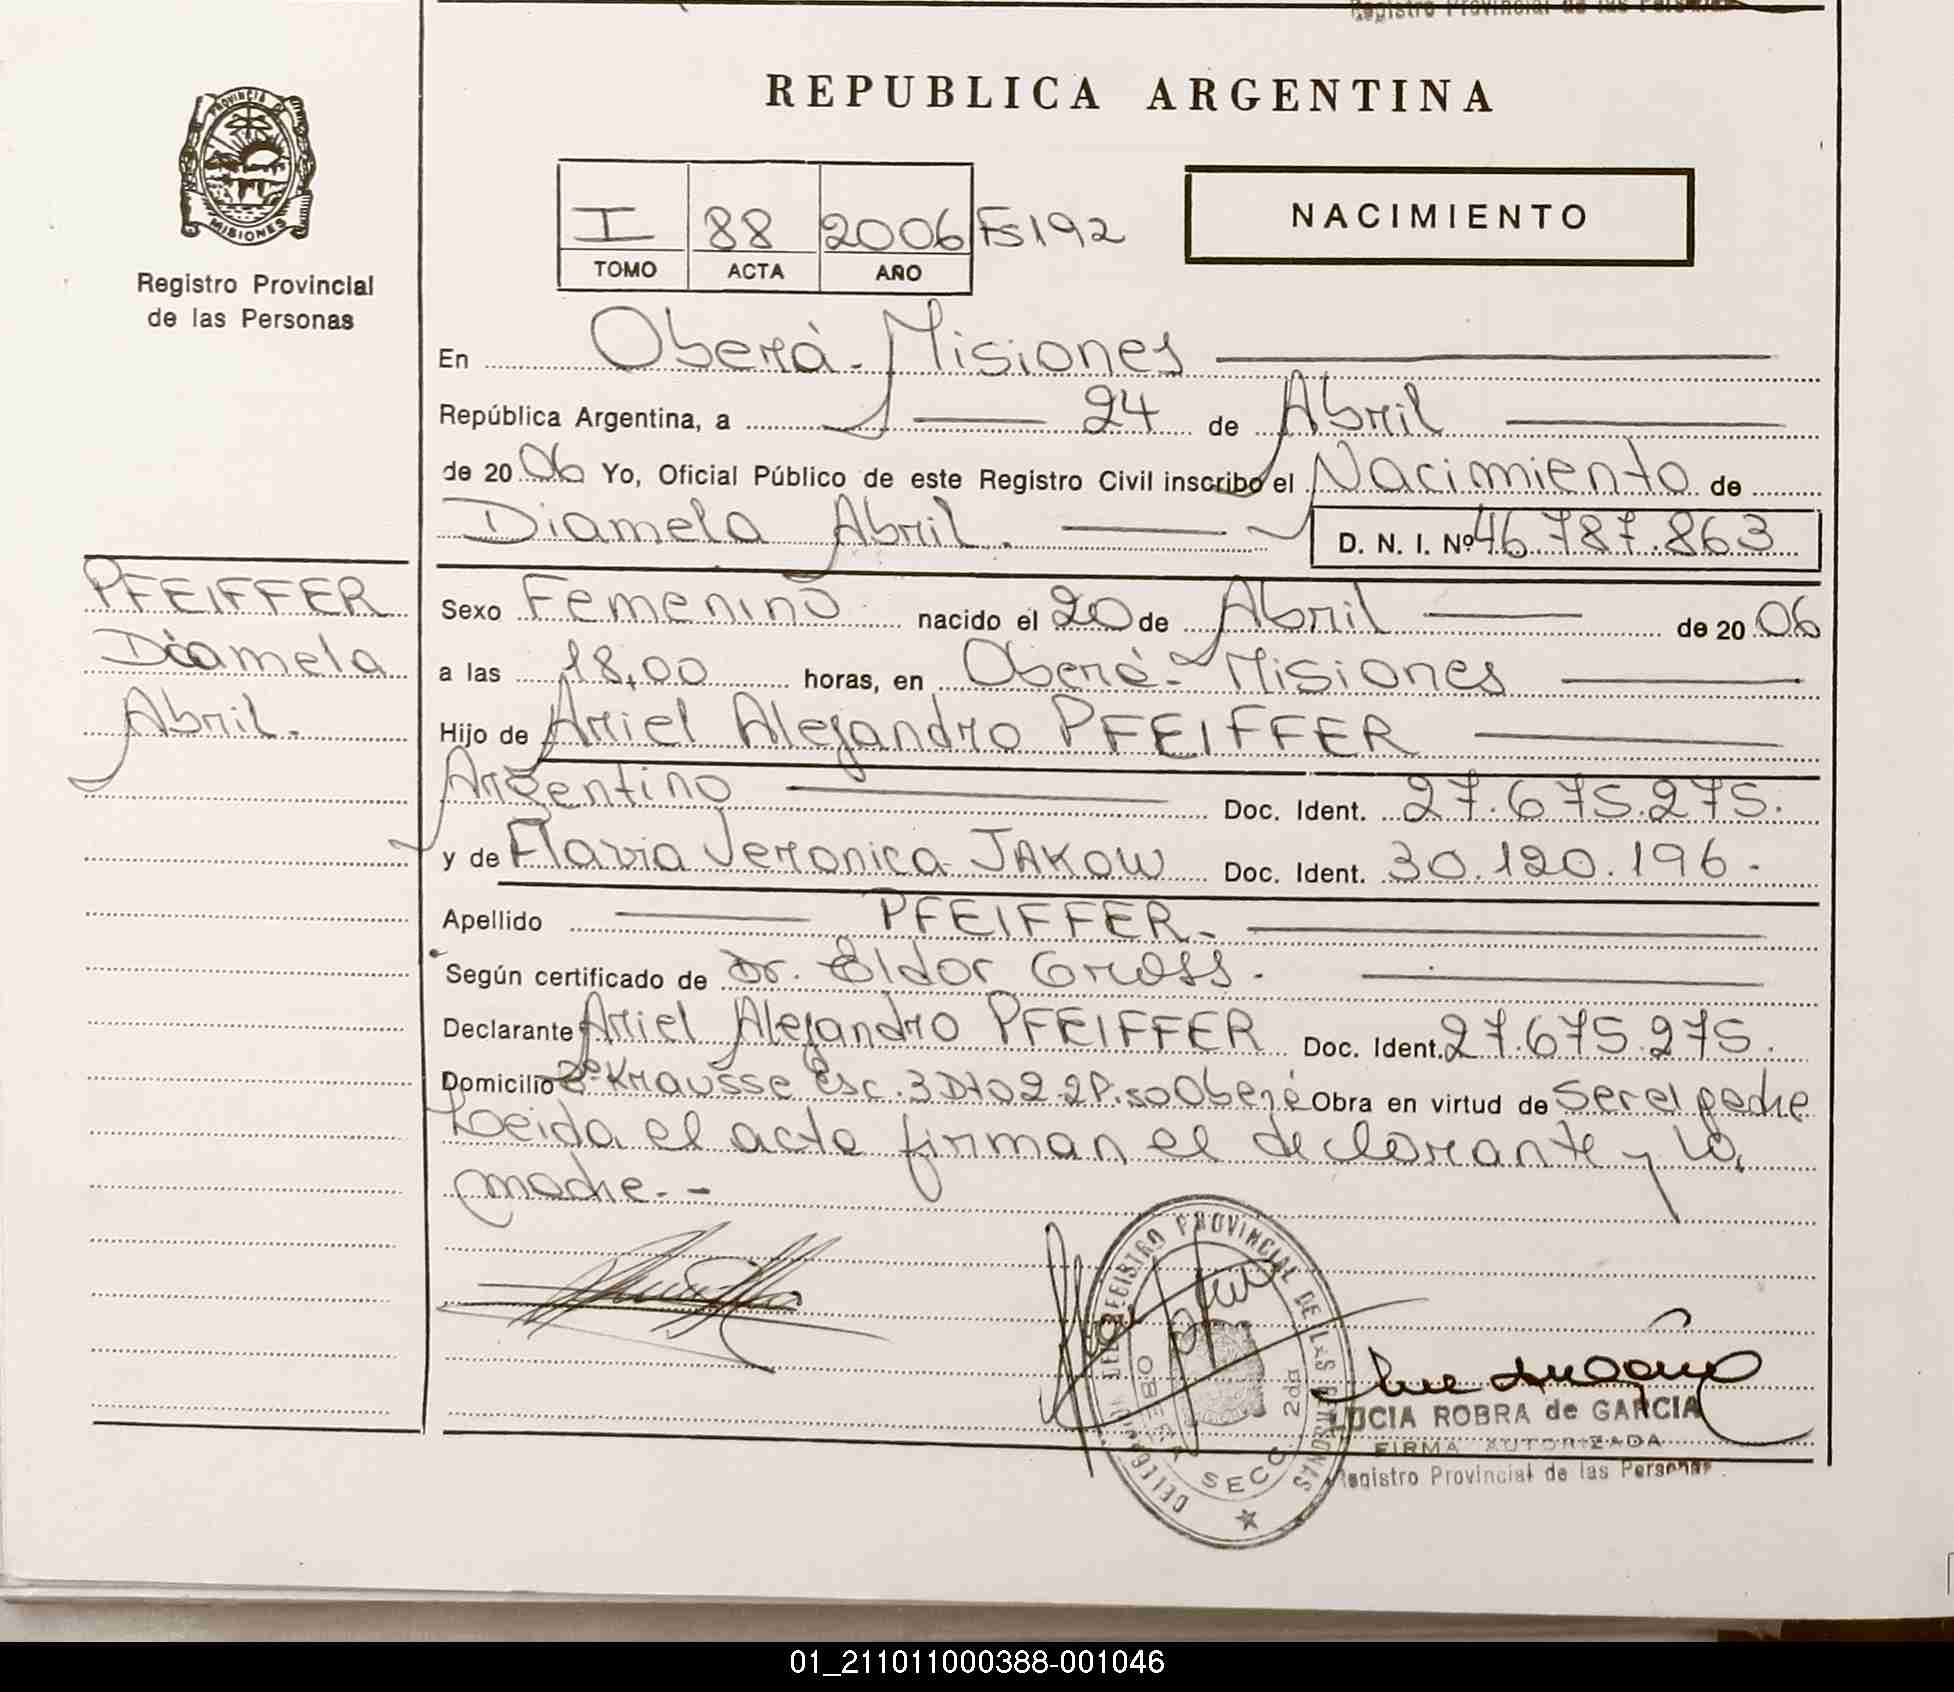 Registro Provincial de las Personas
REPUBLICA ARGENTINA
PROVINCIA DE
MISIONES
Registro Provincial
de las Personas
I 88 2006 Fs 192
TOMO ACTA AÑO
NACIMIENTO
En Oberá - Misiones
República Argentina, a 24 de Abril
de 2006 Yo, Oficial Público de este Registro Civil inscribo el Nacimiento de
Diamela Abril. D. N. I. Nº 46.787.863
PFEIFFER
Diamela
Abril.
Sexo Femenino nacido el 20 de Abril de 2006
a las 18,00 horas, en Oberá - Misiones
Hijo de Ariel Alejandro PFEIFFER
Argentino Doc. Ident. 27.675.275.
y de Flavia Veronica JAKOW Doc. Ident. 30.120.196.
Apellido PFEIFFER.
Según certificado de Dr. Eldor Gross.
Declarante Ariel Alejandro PFEIFFER Doc. Ident. 27.675.275.
Domicilio Krausse Esc. 3 Dto 2 2 Piso Oberá Obra en virtud de ser el padre
Leida el acta firman el declarante y la
madre.-
DELEGACION DEL REGISTRO PROVINCIAL DE LAS PERSONAS
OBERA SECC. 2da
LUCIA ROBRA de GARCIA
FIRMA AUTORIZADA
Registro Provincial de las Personas
01_211011000388-001046